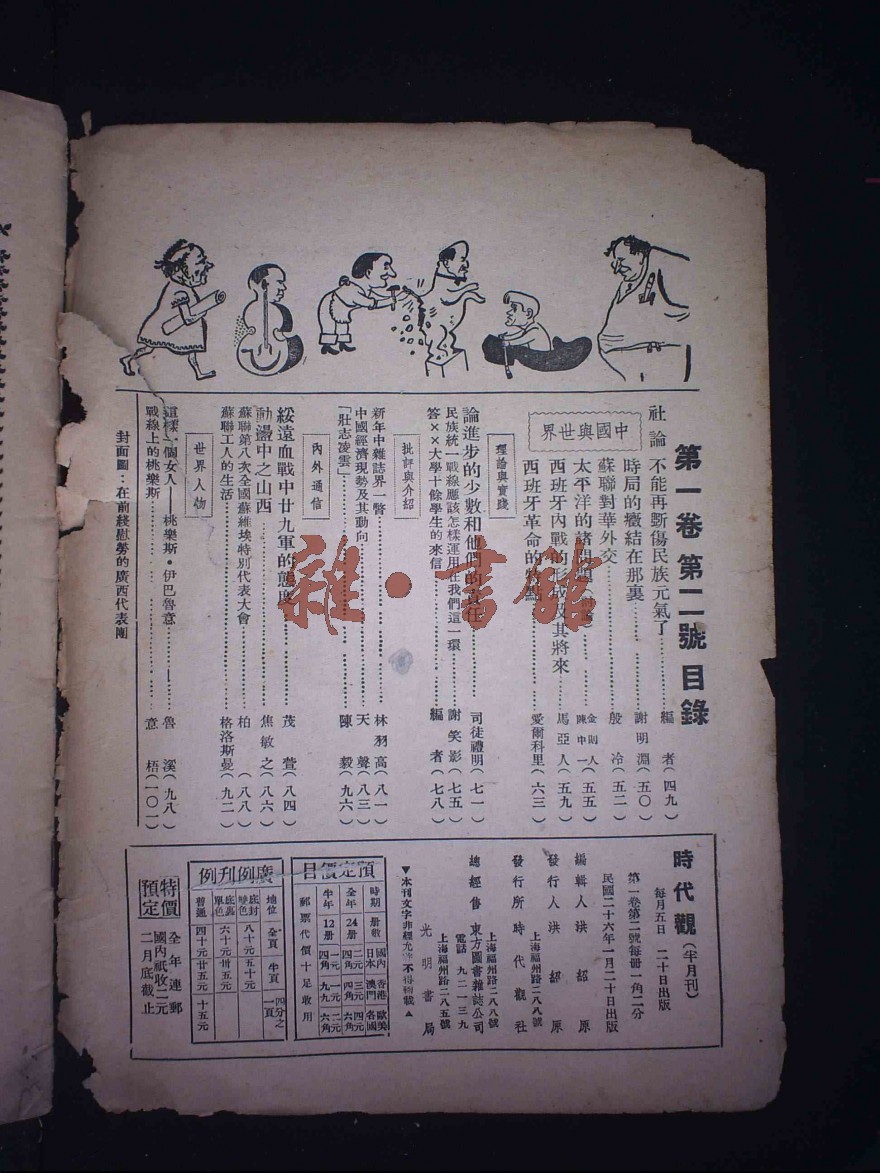 第一卷 第二號 目錄
社論 不能再斲傷民族元氣了……編者（四九）
中國與世界
時局的癥結在那裏……謝明淵（五〇）
蘇聯對華外交……殷冷（五二）
太平洋的諸問題……金則人 陳中一（五五）
西班牙內戰的 成及其將來……馬亞人（五九）
西班牙革命的 點……愛爾科里（六三）
理論與實踐
論進步的少數和他們的責任……司徒禮明（七一）
民族統一戰線應該怎樣運用在我們這一環……謝笑影（七五）
答××大學十餘學生的來信……編者（七八）
批評與介紹
新年中雜誌界一瞥……林羽高（八一）
中國經濟現勢及其動向……天聲（八三）
「壯志凌雲」……陳毅（九六）
內外通信
綏遠血戰中廿九軍的態度……茂萱（八四）
動盪中之山西……焦敏之（八六）
蘇聯第八次全國蘇維埃特別代表大會……柏（八八）
蘇聯工人的生活……格洛斯曼（九二）
世界人物
這樣一個女人——桃樂斯·伊巴魯意……魯溪（九八）
戰線上的桃樂斯……意梧（一〇一）
封面圖：在前綫慰勞的廣西代表團
時代觀（半月刊）
每月五日 二十日出版
第一卷第二號每冊一角二分
民國二十六年一月二十日出版
編輯人 洪紹原
發行人 洪紹原
上海福州路二八八號
發行所 時代觀社
上海福州路二八八號
總經售 東方圖書雜誌公司
電話 九二一三九
上海福州路二八五號
光明書局
▼本刊文字非經允許不得轉載▲
預定價目
時期 冊數 國內 日本 香港 澳門 歐美 各國
全年 24冊 二元四角 三元四角 四元六角
半年 12冊 一元四角 一元九角 二元六角
郵票代價十足收用
廣例刊例
地位 全頁 半頁 四分之一頁
底封雙色 八十元 五十元
底裏單色 六十元 卅五元
普通 四十元 廿五元 十五元
特價預定
全年連郵
國內祇收二元
二月底截止
雜·書館